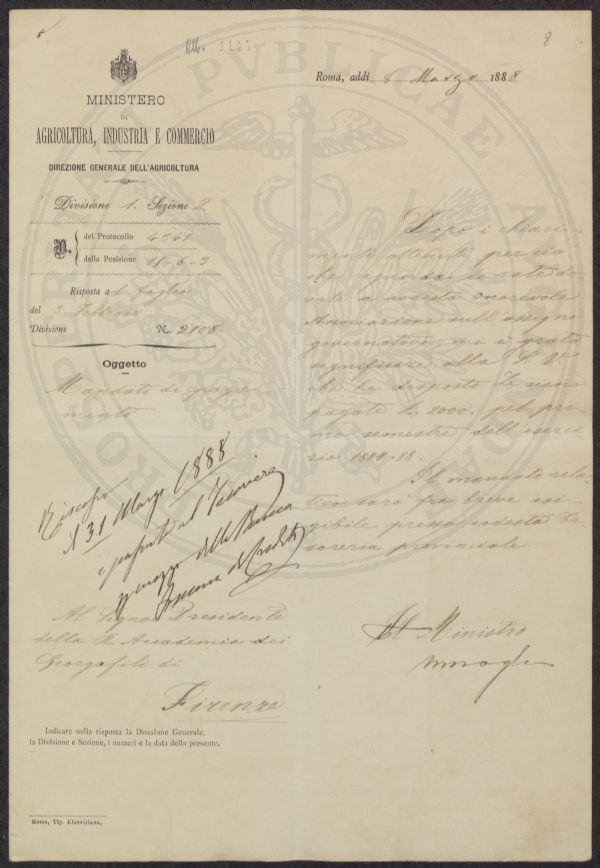 8
Roma, addì 8 Marzo 1888
MINISTERO
DI
AGRICOLTURA, INDUSTRIA E COMMERCIO
DIREZIONE GENERALE DELL'AGRICOLTURA
Divisione 1. Sezione 2.
N. del Protocollo 4341
della Posizione 11-6-3
Risposta a l foglio
del 3 Febbraio
Divisione N. 2106
Oggetto
Mandato di paga-
mento
Dopo i chiari-
menti ottenuti per ciò
che riguarda le rate do-
vute a codesta onorevole
Associazione sull'assegno
governativo, mi è grato
significare alla S. V.
che ho disposto le siano
pagate L. 2000. pel pri-
mo semestre dell'eserci-
zio 1887-88.
Il mandato rela-
tivo sarà fra breve esi-
gibile presso codesta Te-
soreria provinciale.
Il Ministro
Riscosso
il 31 Marzo 1888
e al
della Banca
Toscana di Credito
Al Signor Presidente
della R. Accademia dei
Georgofili di
Firenze
Indicare nella risposta la Direzione Generale,
la Divisione e Sezione, i numeri e la data della presente.
Roma, Tip. Elzeviriana.
PVBLICAE